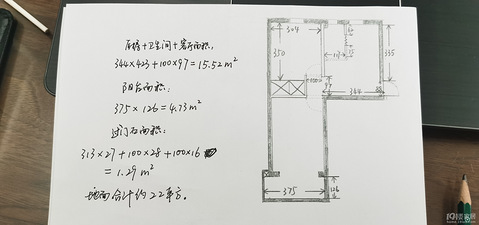 厨房+卫生间+客厅面积:
344×423+100×97=15.52m²
阳台面积:
375×126=4.73m²
过门石面积:
313×27+100×28+100×16
=1.29m²
地面合计约22平方。
304
350
335
100
97
344
375
126